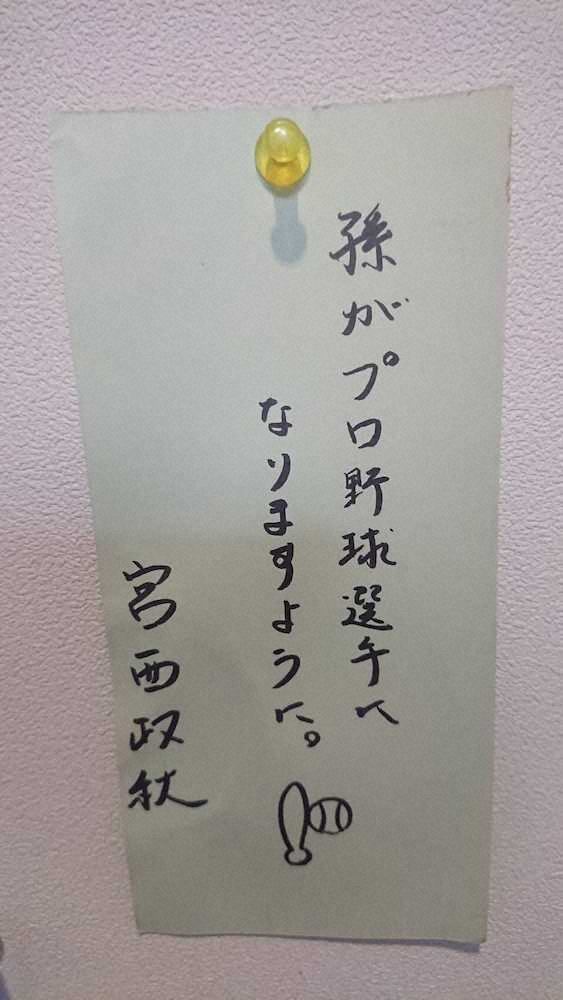 孫がプロ野球選手に
なりますように。
宮西政秋